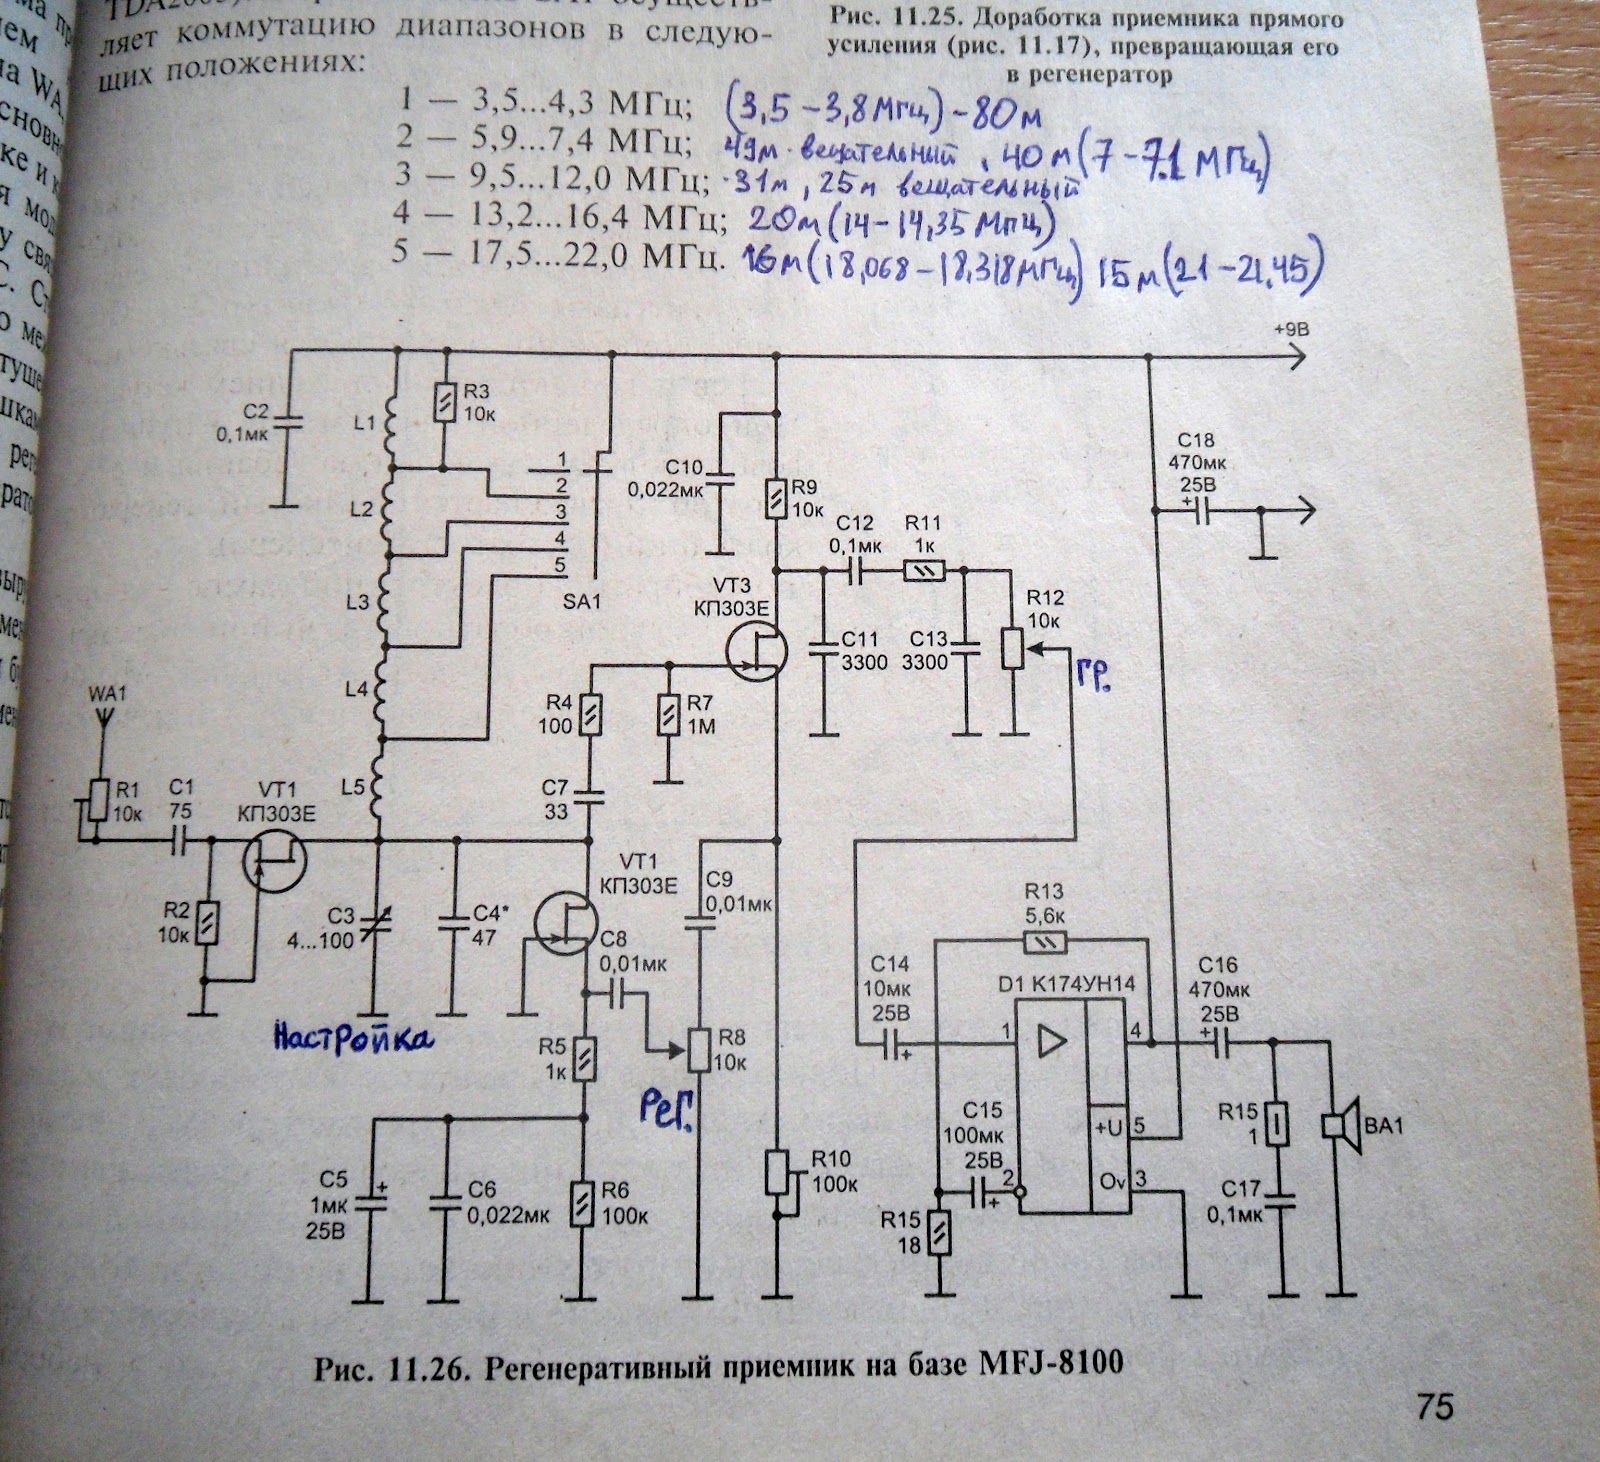 ляет коммутацию диапазонов в следую-
щих положениях:
Рис. 11.25. Доработка приемника прямого
усиления (рис. 11.17), превращающая его
в регенератор
1 — 3,5...4,3 МГц; (3,5 – 3,8 Мгц) – 80 м
2 — 5,9...7,4 МГц; 49м вещательный, 40 м (7 – 7.1 МГц)
3 — 9,5...12,0 МГц; 31м, 25 м вещательный
4 — 13,2...16,4 МГц; 20м (14 – 14,35 Мгц)
5 — 17,5...22,0 МГц. 16м (18,068 – 18,318 мгц) 15 м (21 – 21,45)
+9В
C2
0,1мк
L1
R3
10к
L2
1
2
3
4
5
SA1
C10
0,022мк
R9
10к
C18
470мк
25В
+
C12
0,1мк
R11
1к
L3
VT3
КП303Е
C11
3300
C13
3300
R12
10к
гр.
WA1
L4
R4
100
R7
1М
R1
10к
C1
75
VT1
КП303Е
L5
C7
33
R2
10к
C3
4...100
C4*
47
VT1
КП303Е
C8
0,01мк
C9
0,01мк
R13
5,6к
C14
10мк
25В
+
D1 К174УН14
1
4
C16
470мк
25В
+
Настройка
R5
1к
R8
10к
Рег.
C15
100мк
25В
+
2
+U
5
R15
1
BA1
C5
1мк
25В
+
C6
0,022мк
R6
100к
R10
100к
R15
18
Ov
3
C17
0,1мк
Рис. 11.26. Регенеративный приемник на базе MFJ-8100
75